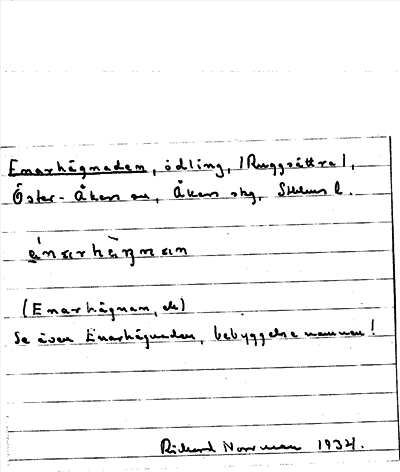 Enarhägnaden, odling, (Ruggsättra),
Öster-Åkers sn, Åkers skg, Sthlms l.
(Enarhägnan, de)
Se även Enarhägnaden, bebyggelsenamnen!
Rickard Norrman 1934.